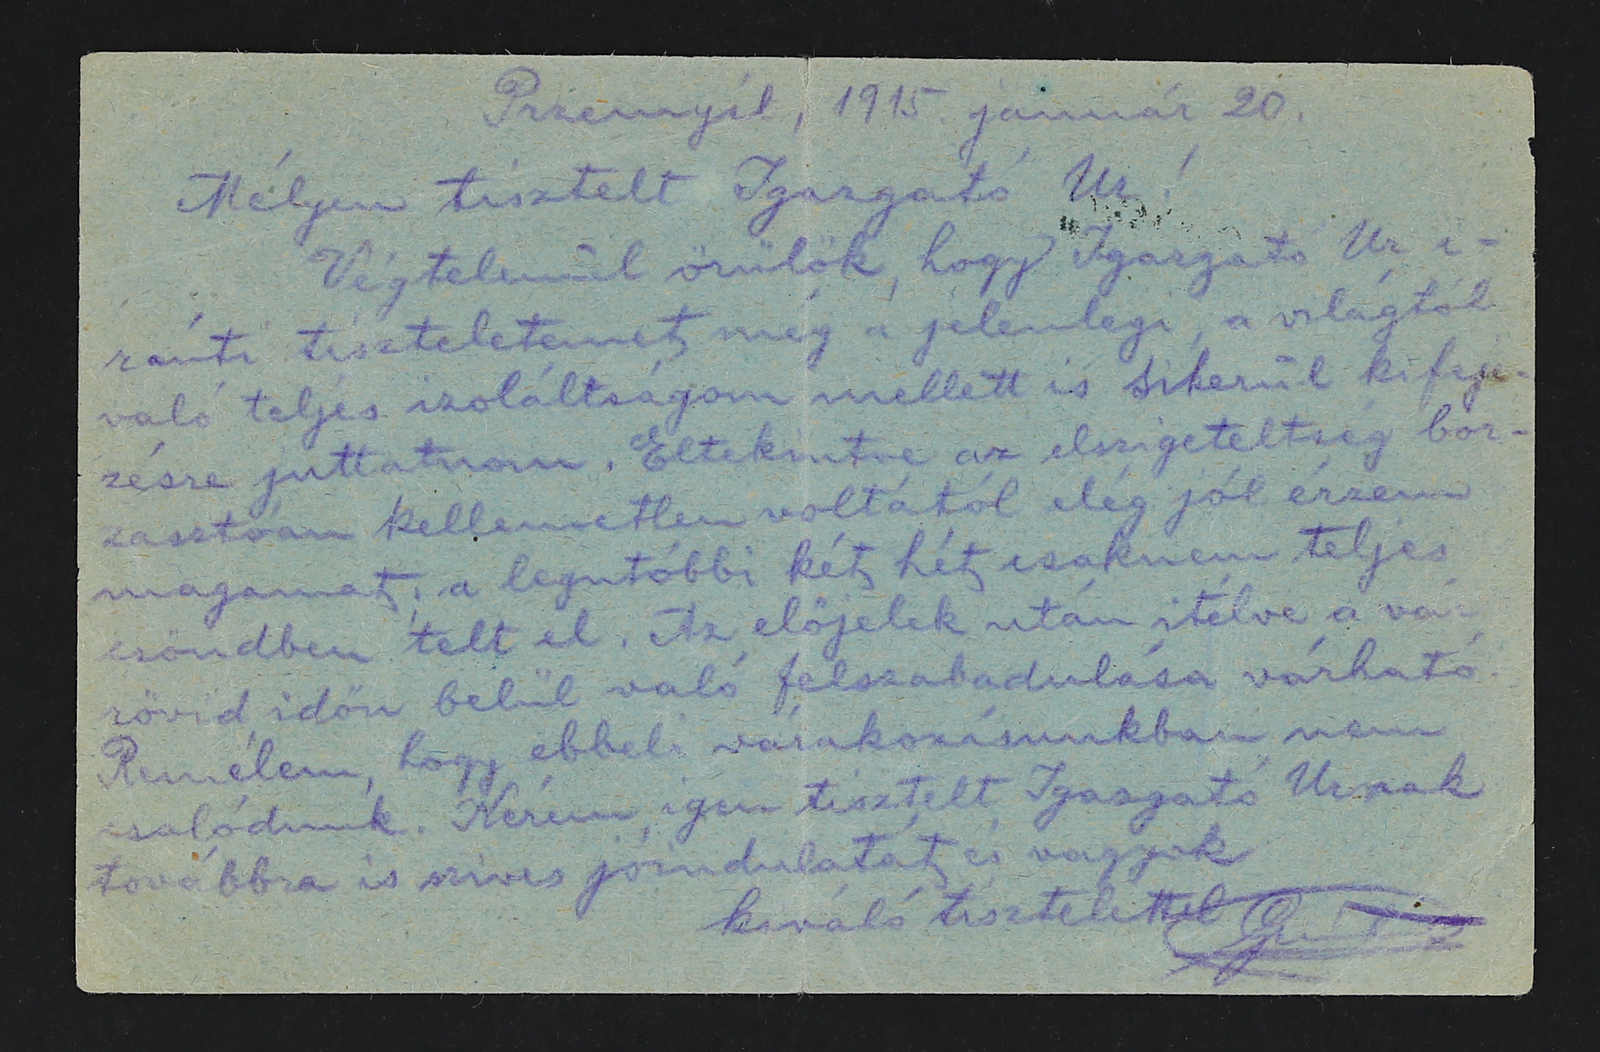 Przemysl, 1915. január 20.
Mélyen tisztelt Igazgató Ur!
Végtelenül örülök, hogy Igazgató Ur i-
ránti tiszteletemet még a jelenlegi, a világtól
való teljes izoláltságom mellett is sikerül kifeje-
zésre juttatnom. Eltekintve az elszigeteltség bor-
zasztóan kellemetlen voltától elég jól érzem
magamat, a legutóbbi két hét csaknem teljes
csöndben telt el. Az előjelek után itélve a vár
rövid időn belül való felszabadulása várható.
Remélem, hogy ebbeli várakozásunkban nem
csalódunk. Kérem igen tisztelt Igazgató Urnak
továbbra is szives jóindulatát és vagyok
kiváló tisztelettel